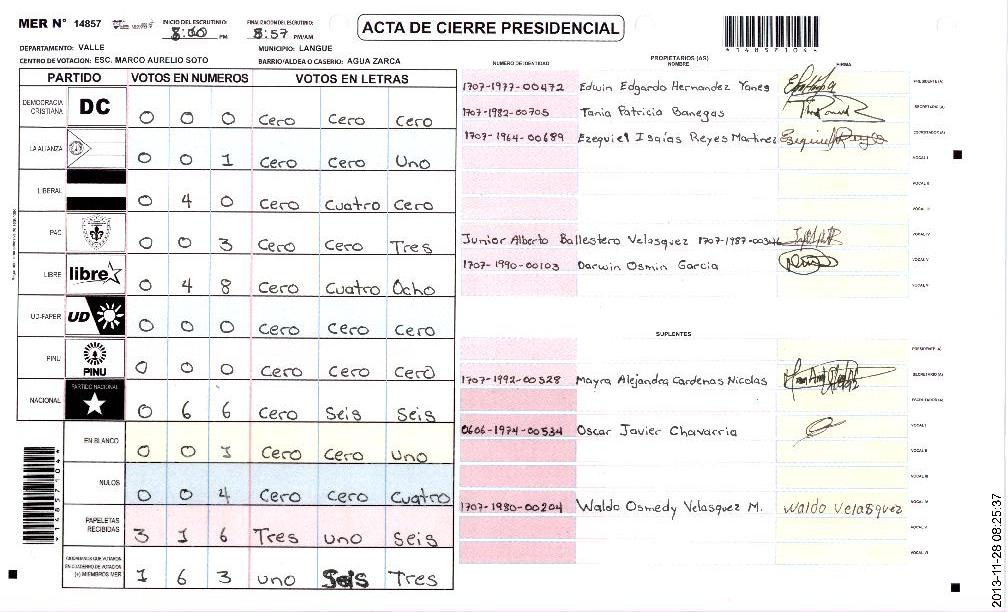 MER N° 14857
INICIO DEL ESCRUTINIO: 8:00 PM
FINALIZACION DEL ESCRUTINIO: 8:57 PM/AM
ACTA DE CIERRE PRESIDENCIAL
9148571044
DEPARTAMENTO: VALLE
MUNICIPIO: LANGUE
CENTRO DE VOTACION: ESC. MARCO AURELIO SOTO
BARRIO/ALDEA O CASERIO: AGUA ZARCA
PARTIDO VOTOS EN NUMEROS VOTOS EN LETRAS
DEMOCRACIA CRISTIANA DC 0 0 0 Cero Cero Cero
LA ALIANZA 0 0 1 Cero Cero Uno
LIBERAL 0 4 0 Cero Cuatro Cero
PAC 0 0 3 Cero Cero Tres
LIBRE libre 0 4 8 Cero Cuatro Ocho
UD-FAPER UD 0 0 0 Cero Cero Cero
PINU PINU 0 0 0 Cero Cero Cero
NACIONAL PARTIDO NACIONAL 0 6 6 Cero Seis Seis
EN BLANCO 0 0 1 Cero Cero Uno
NULOS 0 0 4 Cero Cero Cuatro
PAPELETAS RECIBIDAS 3 1 6 Tres uno Seis
CIUDADANOS QUE VOTARON EN CUADERNO DE VOTACION (+) MIEMBROS MER 1 6 3 uno Seis Tres
NUMERO DE IDENTIDAD PROPIETARIOS (AS) NOMBRE FIRMA
1707-1977-00472 Edwin Edgardo Hernandez Yanes PRESIDENTE (A)
1707-1982-00705 Tania Patricia Banegas SECRETARIO (A)
1707-1964-00689 Ezequiel Isaías Reyes Martinez ESCRUTADOR (A)
VOCAL I
VOCAL II
VOCAL III
Junior Alberto Ballestero Velasquez 1707-1987-00346 VOCAL IV
1707-1990-00103 Darwin Osmin Garcia VOCAL V
VOCAL VI
SUPLENTES
PRESIDENTE (A)
1707-1992-00328 Mayra Alejandra Cardenas Nicolas SECRETARIO (A)
ESCRUTADOR (A)
0606-1974-00534 Oscar Javier Chavarria VOCAL I
VOCAL II
VOCAL III
1707-1980-00204 Waldo Osmedy Velasquez M. Waldo Velasquez VOCAL IV
VOCAL V
VOCAL VI
2013-11-28 08:25:37